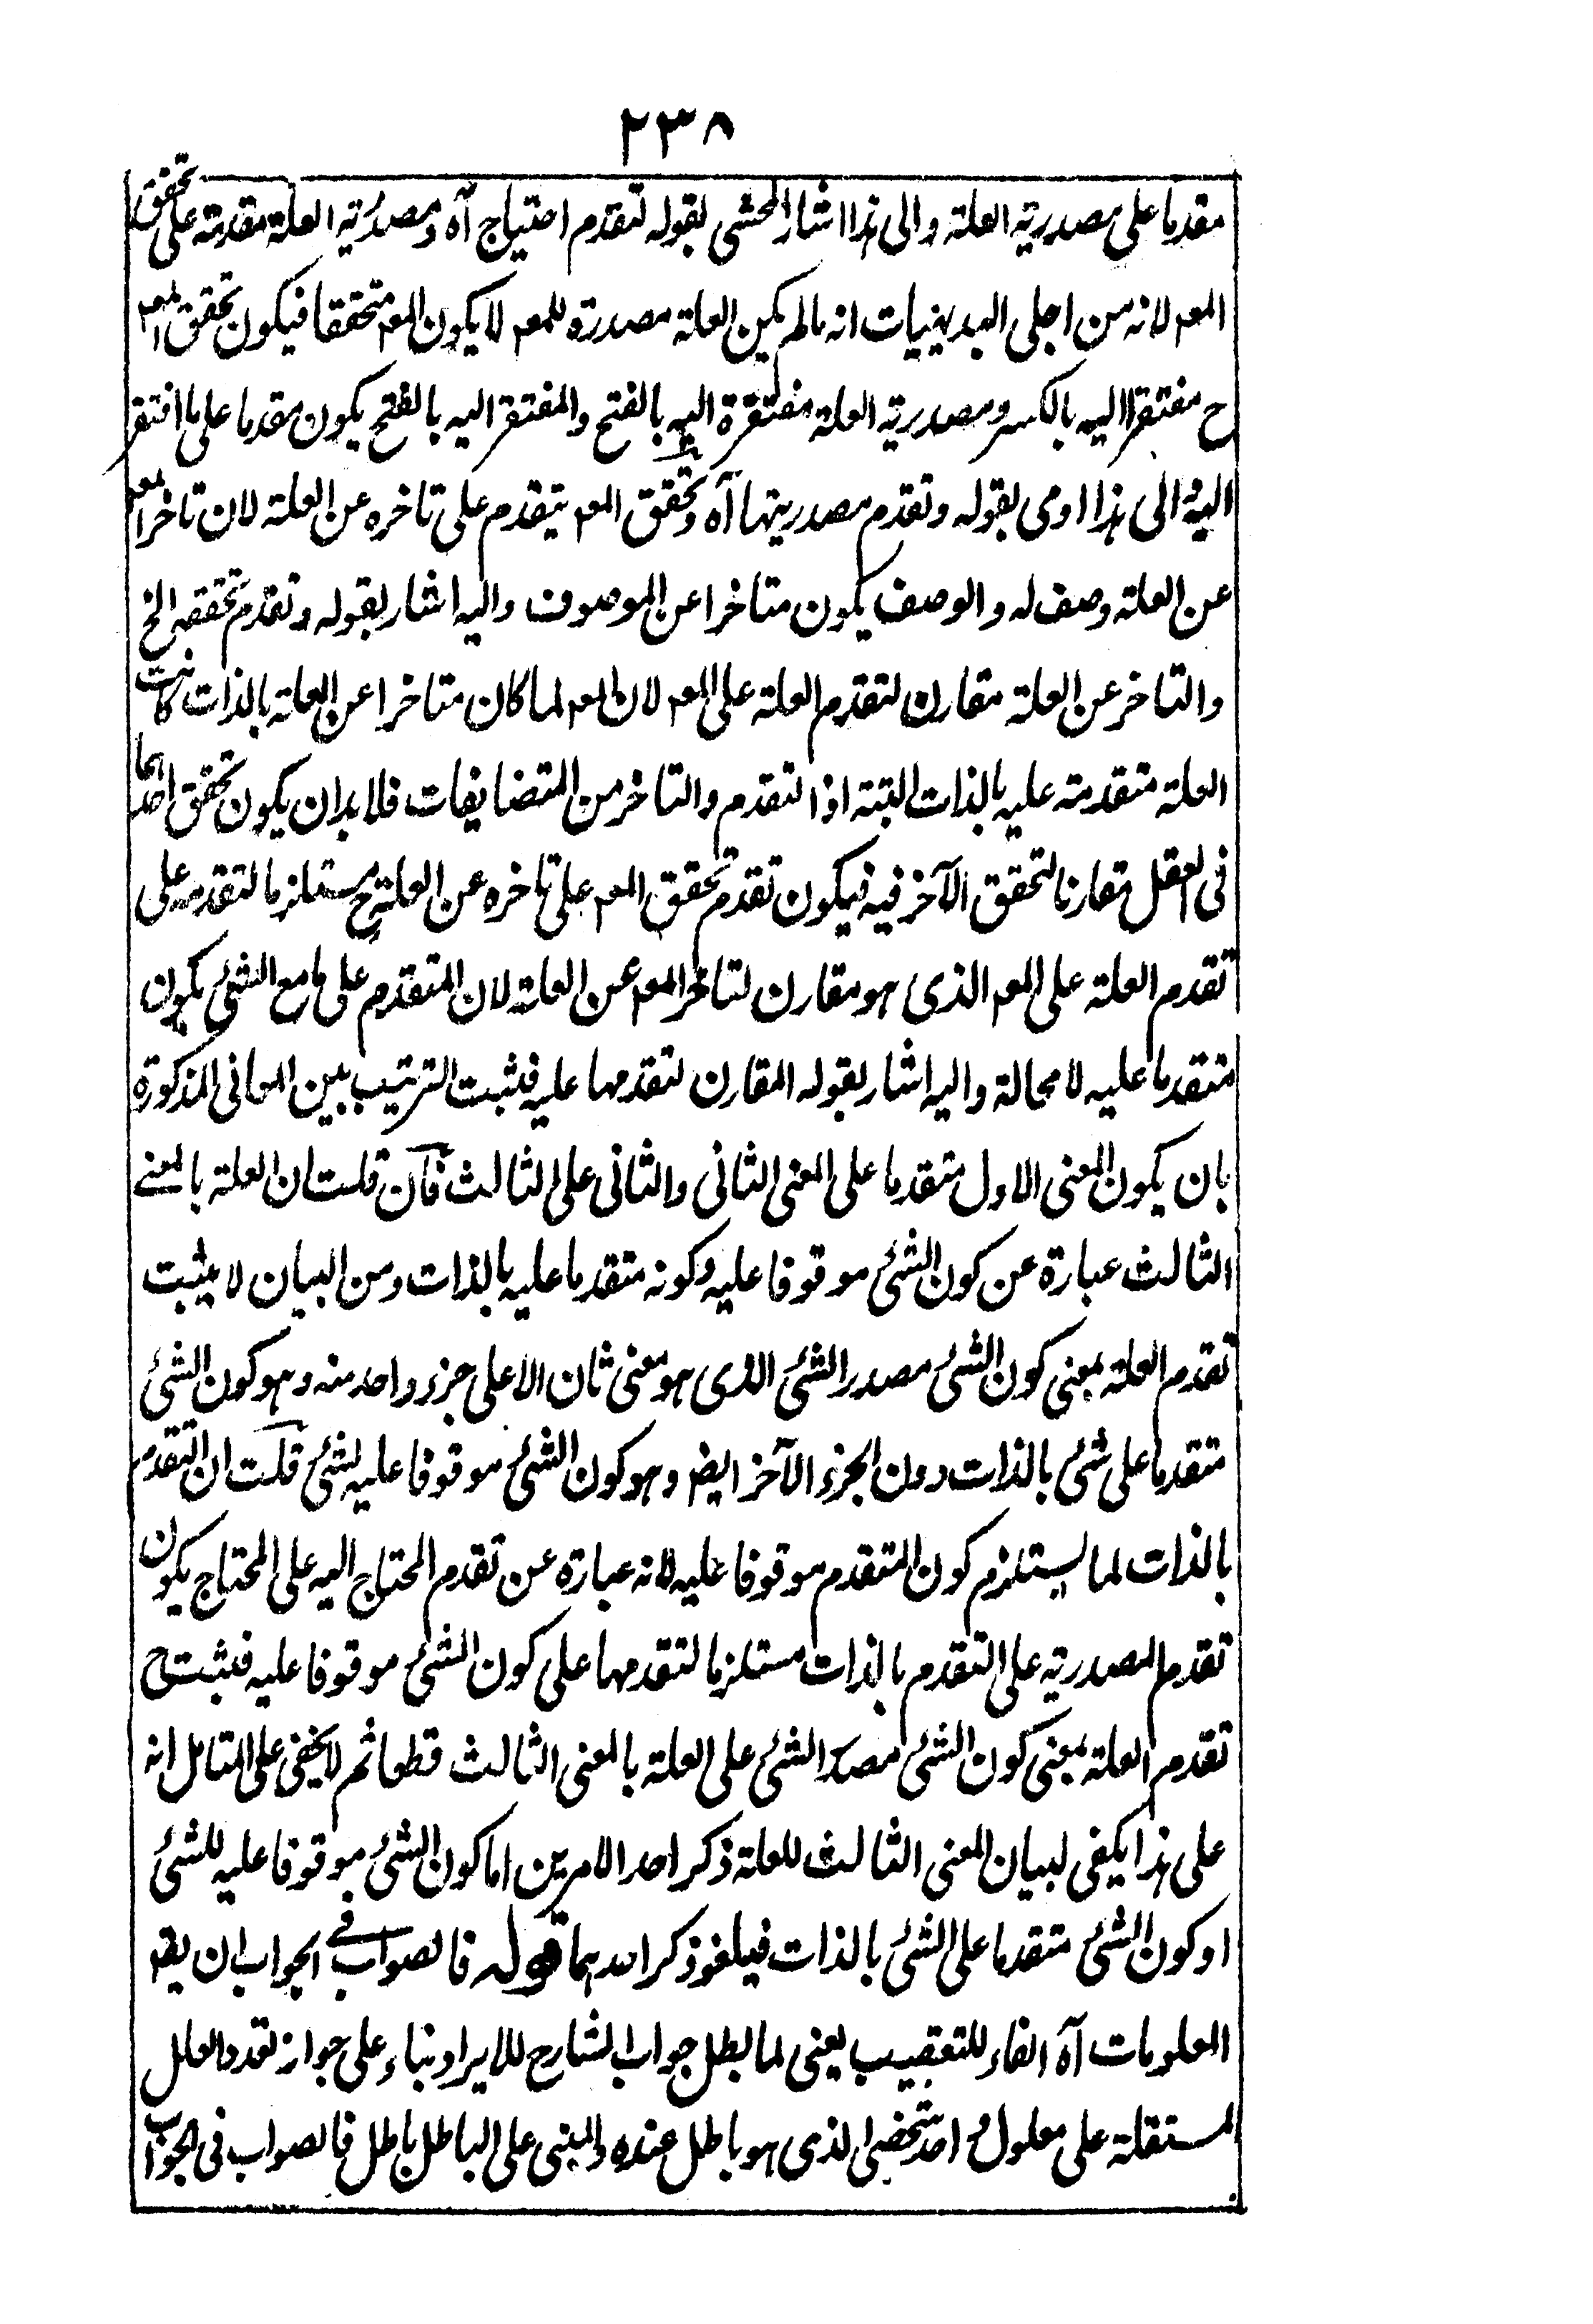 ٢٣٨
مقدما على مصدرية العلة والى هذا اشار المحشى بقوله لتقدم احتياج آه ومصدرية العلة مقدمة على تحقق
المعـ لانه من اجلى البديهيات انه مالم يكن العلة مصدرة للمعـ لا يكون المعـ متحققا فيكون تحقق المعـ
ح مفتقرا اليه بالكسر ومصدرية العلة مفتقرة اليه بالفتح والمفتقر اليه بالفتح يكون مقدما على ما افتقر
اليه والى هذا اومى بقوله وتقدم مصدريتها آه وتحقق المعـ يتقدم على تاخره عن العلة لان تاخر المعـ
عن العلة وصف له والوصف يكون متاخرا عن الموصوف واليه اشار بقوله وتقدم تحققه الخ
والتاخر عن العلة مقارن لتقدم العلة على المعـ لان المعـ لما كان متاخرا عن العلة بالذات كانت
العلة متقدمة عليه بالذات البتة اذ التقدم والتاخر من المتضايفات فلا بد ان يكون تحقق احدهما
فى العقل مقارنا لتحقق الآخر فيه فيكون تقدم تحقق المعـ على تاخره عن العلة ح مستلزما لتقدمه على
تقدم العلة على المعـ الذى هو مقارن لتاخر المعـ عن العلة لان المتقدم على ما مع الشئ يكون
متقدما عليه لا محالة واليه اشار بقوله المقارن لتقدمها عليه فثبت الترتيب بين المعانى المذكورة
بان يكون المعنى الاول متقدما على المعنى الثانى والثانى على الثالث فان قلت ان العلة بالمعنے
الثالث عبارة عن كون الشئ موقوفا عليه وكونه متقدما عليه بالذات ومن البيان لا يثبت
تقدم العلة بمعنى كون الشئ مصدر الشئ الذى هو معنى ثان الا على جزء واحد منه وهو كون الشئ
متقدما على شئ بالذات دون الجزء الآخر ايضـ وهو كون الشئ موقوفا عليه لشئ قلت ان التقدم
بالذات لما يستلزم كون المتقدم موقوفا عليه لانه عبارة عن تقدم المحتاج اليه على المحتاج يكون
تقدم المصدرية على التقدم بالذات مستلزما لتقدمها على كون الشئ موقوفا عليه فثبت ح
تقدم العلة بمعنى كون الشئ مصدر الشئ على العلة بالمعنى الثالث قطعا ثم لا يخفى على المتامل انه
على هذا يكفى لبيان المعنى الثالث للعلة ذكر احد الامرين اما كون الشئ موقوفا عليه للشئ
او كون الشئ متقدما على الشئ بالذات فيلغو ذكر احدهما قوله فالصواب فے الجواب ان يقـ
المعلومات آه الفاء للتعقيب يعنى لما بطل جواب الشارح للايراد بناء على جواز تعدد العلل
المستقلة على معلول واحد شخصى الذى هو باطل عنده والمبنى على الباطل باطل فالصواب فى الجواب